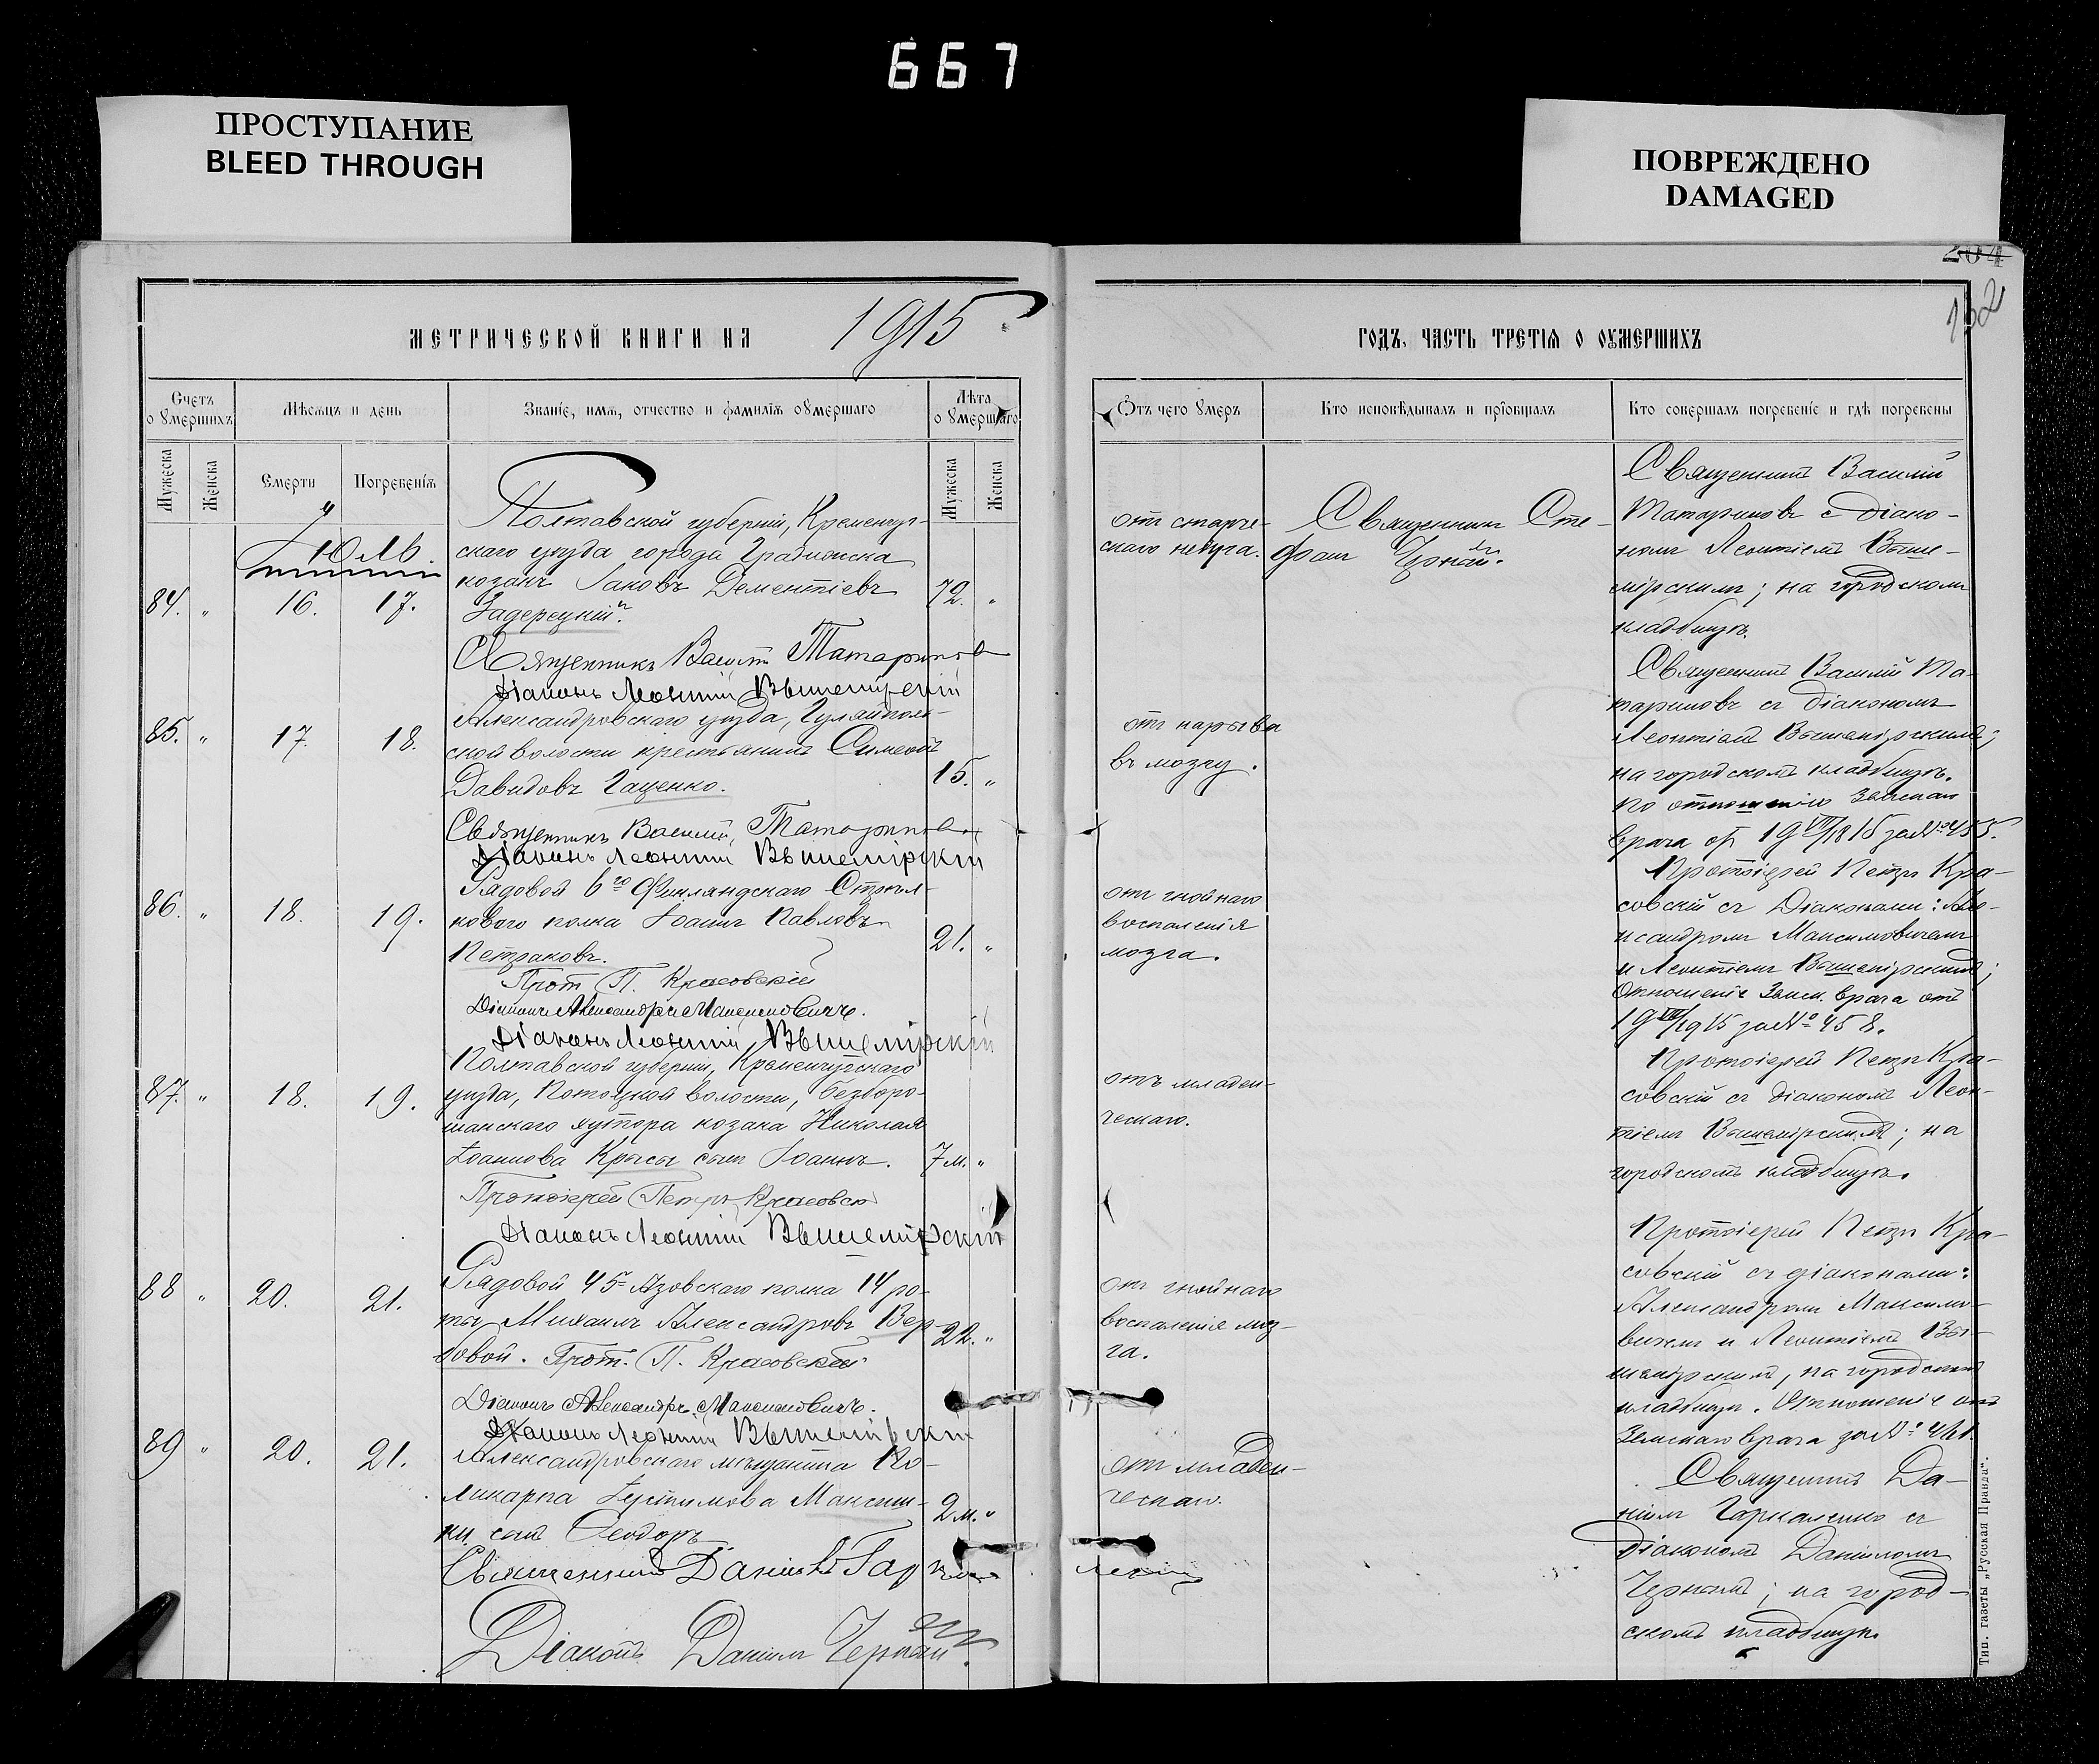 667
ПРОСТУПАНИЕ
BLEED THROUGH
ПОВРЕЖДЕНО
DAMAGED
204
162
МЕТРИЧЕСКОЙ КНИГИ НА 1915
ГОДЪ, ЧАСТЬ ТРЕТІѦ О ОУМЕРШИХЪ
Счетъ
оумершихъ
Мѣсяцъ и день
Званіе, имя, отчество и фамилія оумершаго
Лѣта
оумершаго
Мужеска
Женска
Смерти
Погребенія
Мужеска
Женска
Ѿтъ чего умеръ
Кто исповѣдывалъ и пріобщалъ
Кто совершалъ погребеніе и гдѣ погребены
Юль.
84. " 16. 17.
Полтавской губерніи, Кременчуг-
скаго уѣзда города Градижска
козакъ Іаковъ Дементіевъ
Задерецкій.
72. "
Священникъ Василій Татариновъ
Діаконъ Леонтій Вышемірскій
85. " 17. 18.
Александровскаго уѣзда, Гуляйполь-
ской волости крестьянинъ Симеонъ
Давидовъ Гаценко.
15. "
Священникъ Василій Татариновъ
Діаконъ Леонтій Вышемірскій
86. " 18. 19.
Рядовой 6го Финляндскаго Стрѣл-
коваго полка Іоаннъ Павловъ
Петраковъ.
21. "
Прот. П. Красовскій
Діаконъ Александръ Максимовичъ.
Діаконъ Леонтій Вышемірскій
87. " 18. 19.
Полтавской губерніи, Кременчугскаго
уѣзда, Потоцкой волости, Безборо-
шанскаго хутора козака Николая
Іоаннова Крысы сынъ Іоаннъ.
7 м. "
Протоіерей Петръ Красовск
Діаконъ Леонтій Вышемірскій
88 " 20. 21.
Рядовой 45 Азовскаго полка 14 ро-
ты Михаилъ Александровъ Вер-
бовой. Прот. П. Красовскій
22. "
Діаконъ Александръ Максимовичъ.
Діаконъ Леонтій Вышемірскій
89 " 20. 21.
Александровскаго мѣщанина По-
ликарпа Іустимова Максим-
ки сынъ Ѳеодоръ
2 м. "
Священникъ Даніилъ Гаркаленко
Діаконъ Даніилъ Черный.
отъ старче-
скаго недуга.
Священникъ Сте-
фанъ Черный.
Священникъ Василій
Татариновъ с діако-
номъ Леонтіемъ Выше-
мірскимъ; на городскомъ
кладбищѣ.
отъ нарыва
въ мозгу.
Священникъ Василій Та-
тариновъ съ діакономъ
Леонтіемъ Вышемірскимъ;
на городскомъ кладбищѣ.
по отношенію Земскаго
врача от 19 VII/1915 за № 455.
отъ гнойнаго
воспаленія
мозга.
Протоіерей Петръ Кра-
совскій съ Діаконами: Але-
ксандромъ Максимовичемъ
и Леонтіемъ Вышемірскимъ;
Отношеніе Земск. врача отъ
19 VII/1915 за № 458.
отъ младен-
ческаго.
Протоіерей Петръ Кра-
совскій съ діакономъ Леон-
тіемъ Вышемірскимъ; на
городскомъ кладбищѣ.
отъ гнойнаго
воспаленія моз-
га.
Протоіерей Петръ Кра-
совскій съ діаконами:
Александромъ Максимо-
вичемъ и Леонтіемъ Вы-
шемірскимъ, на городскомъ
кладбищѣ. Отношеніе отъ
Земскаго врача за № 461.
отъ младен-
ческаго.
Священникъ Да-
ніилъ Гаркаленко съ
діакономъ Даніиломъ
Чернымъ; на город-
скомъ кладбищѣ.
Тип. газеты „Русская Правда".